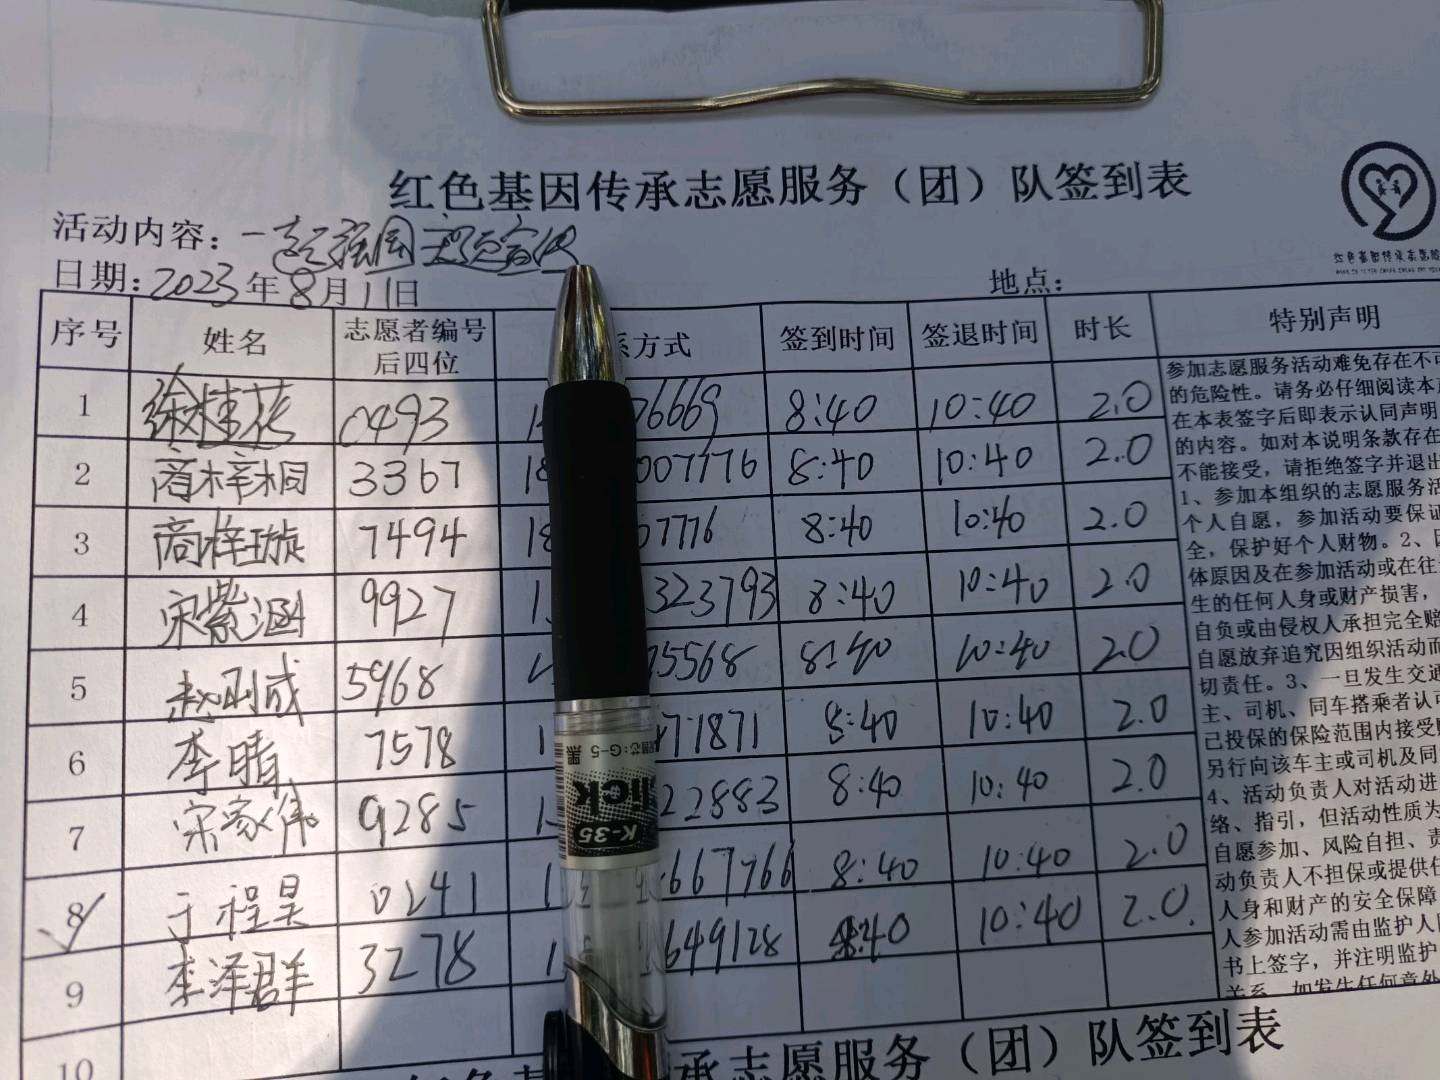 红色基因传承志愿服务（团）队签到表
活动内容：一起强国志愿宣传
日期：2023年8月11日 地点：
序号 姓名 志愿者编号后四位 系方式 签到时间 签退时间 时长 特别声明
1 徐桂花 0493 1 76669 8:40 10:40 2.0
2 商梓桐 3367 18 007776 8:40 10:40 2.0
3 商梓璇 7494 18 07776 8:40 10:40 2.0
4 宋紫涵 9927 1 323793 8:40 10:40 2.0
5 赵刚成 5968 1 75568 8:40 10:40 2.0
6 李晴 7578 1 771871 8:40 10:40 2.0
7 宋家伟 9285 1 22883 8:40 10:40 2.0
8 于程昊 0241 1 667966 8:40 10:40 2.0
9 李泽群 3278 1 649128 8:40 10:40 2.0.
10
参加志愿服务活动难免存在不可
的危险性。请务必仔细阅读本
在本表签字后即表示认同声明
的内容。如对本说明条款存在
不能接受，请拒绝签字并退出
1、参加本组织的志愿服务活
个人自愿，参加活动要保证
全，保护好个人财物。2、因
体原因及在参加活动或在往
生的任何人身或财产损害，
自负或由侵权人承担完全赔
自愿放弃追究因组织活动而
切责任。3、一旦发生交通
主、司机、同车搭乘者认可
己投保的保险范围内接受
另行向该车主或司机及同
4、活动负责人对活动进
络、指引，但活动性质为
自愿参加、风险自担、责
动负责人不担保或提供任
人身和财产的安全保障
人参加活动需由监护人
书上签字，并注明监护
关系。如发生任何意外
替芯:G-5 黑
stick
K-35
承志愿服务（团）队签到表